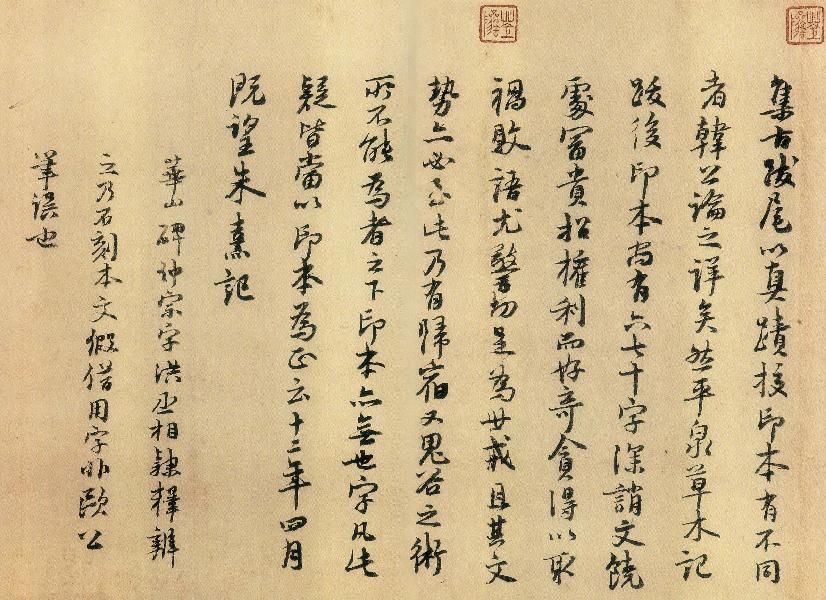 集古跋尾以真蹟挍印本有不同
者韓公論之詳矣然平泉草木記
跋後印本尚有六七十字深誚文饒
處富貴招權利而好奇貪得以取
禍敗語尤警切足為世戒且其文
勢亦必至此乃有歸宿又鬼谷之術
所不能為者之下印本亦無也字凡此
疑皆當以印本為正云十二年四月
既望朱熹記
華山碑仲宗字洪丞相隸釋辨
之乃石刻本文假借用字非歐公
筆誤也